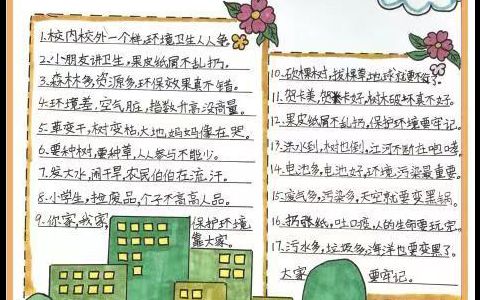 1.校内校外一个样,环境卫生人人争
2.小朋友讲卫生,果皮纸屑不乱扔。
3.森林多,资源多,环保效果真不错。
4.环境差,空气脏,指数升高没商量。
5.草变干,树变枯,大地妈妈像在哭。
6.要种树,要种草,人人参与不能少。
7.发大水,闹干旱,农民伯伯在流汗。
8.小学生,捡废品,个子不高高人品。
9.你家,我家,保护环境
靠大家。
10.砍棵树,拔棵草,地球在要
11.贺卡美,贺卡好,树木破坏真不好。
12.果皮纸屑不乱扔,保护环境要牢记。
13.洪水到,树也倒,江河不断在咆哮。
14.电池多,电池好,环境污染最重要。
15.废气多,污染多,天空就要变黑锅。
16.扔张纸,吐口痰,人的生命要玩完。
17.污水多,垃圾多,海洋也要变黑了。
大家要牢记。